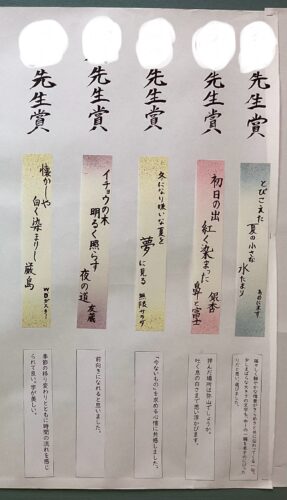 先生賞
とびこえた
夏の小さな
水たまり
先生賞
初日の出
紅く染まった
鼻と富士
銀杏
拝んだ場所は弥山でしょうか。
吐く息の白さまで思い浮かびます。
先生賞
冬になり嫌いな夏を
夢に見る
を求める心情に共感しました。
先生賞
イチョウの木
明るく照らす
夜の道
友蔵
前向きになれると思いました。
先生賞
懐かしや
白く染まりし
厳島
季節の移り変わりとともに時間の流れを感じ
られて良い。字が美しい。